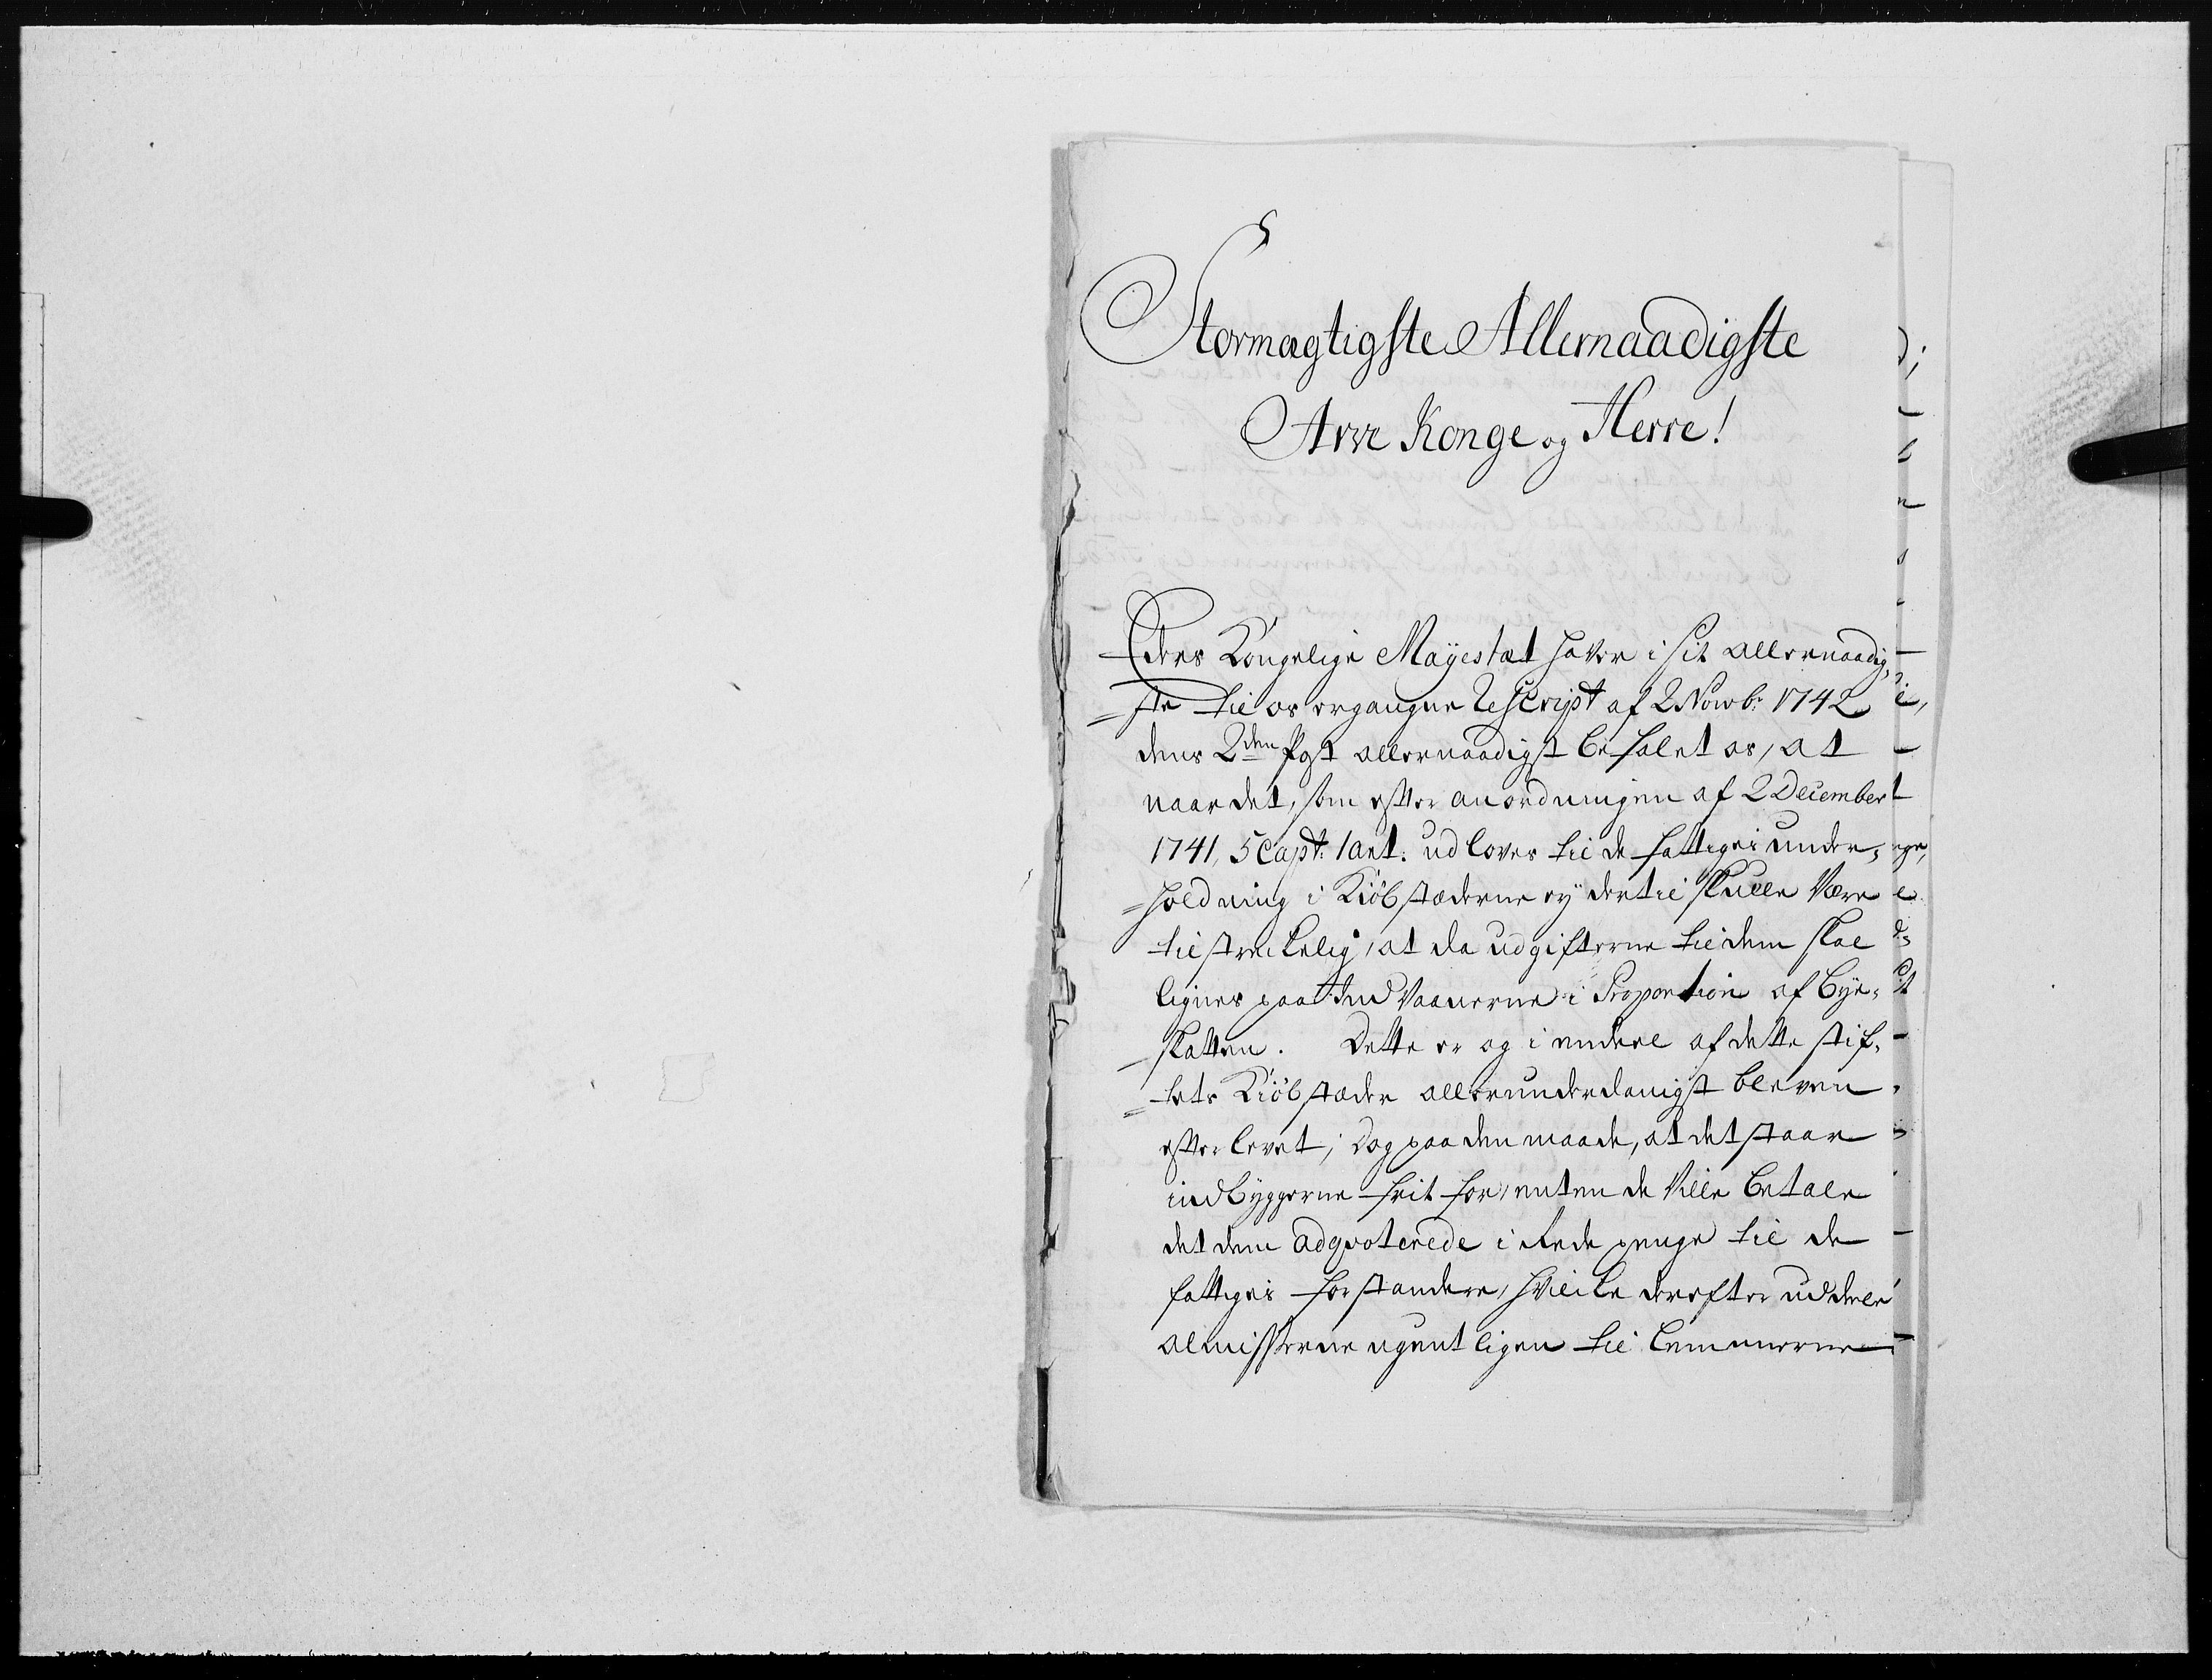 Stormægtigste Allernaadigste
Arve Konge og Herre!
Eders Kongelige Mayestæt haver i sit allernaadig-
ste til os ergangne Rescript af 2 Novb: 1742
dens 2den Post allernaadigst befalet os, at
naar det, som efter anordningen af 2 December
1741, 5 Capt: 1 art. udloves til de fattiges under-
holdning i Kiøbstæderne ey dertil skulle være
tilstrekkelig, at da udgifterne til dem skal
lignes paa Indvaanerne i Proportion af Bye-
skatten. Dette er og i endeel af dette stif-
tets Kiøbstæder allerunderdanigst bleven
efterlevet; dog paa den maade, at det staar
indbyggerne frit for, enten de ville betale
det dem adqvoterede i rede penge til de
fattiges forstandere, hvilke derefter uddele
almisserne ugentligen til lemmerne